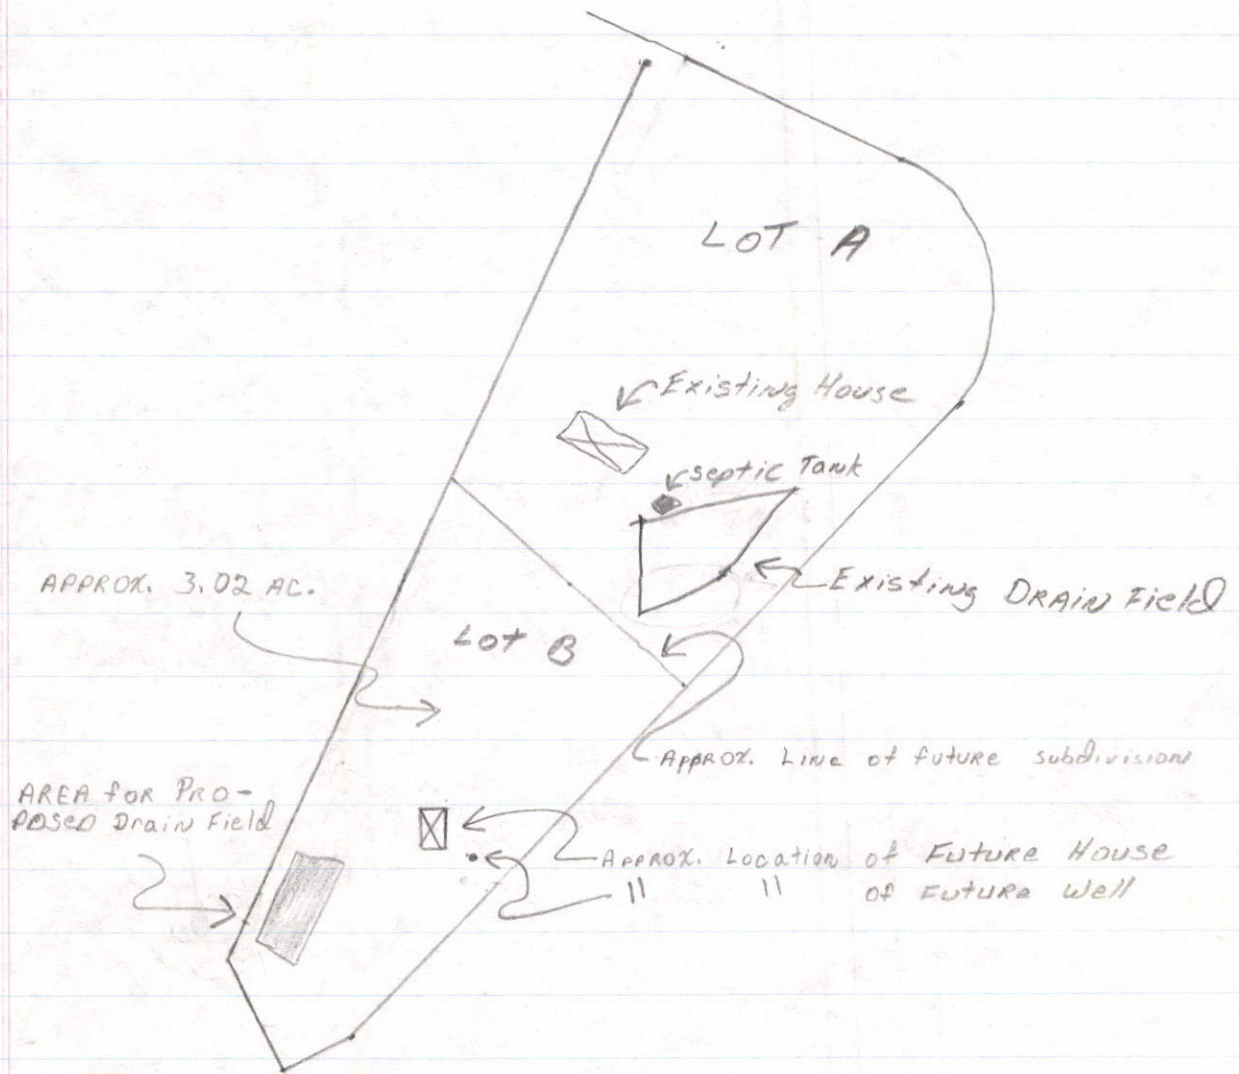 LOT A
Existing House
septic Tank
Existing DRAIN Field
APPROX. 3.02 AC.
Lot B
Approx. Line of future subdivision
AREA for PRO-
POSED Drain Field
Approx. Location of Future House
" " of Future Well